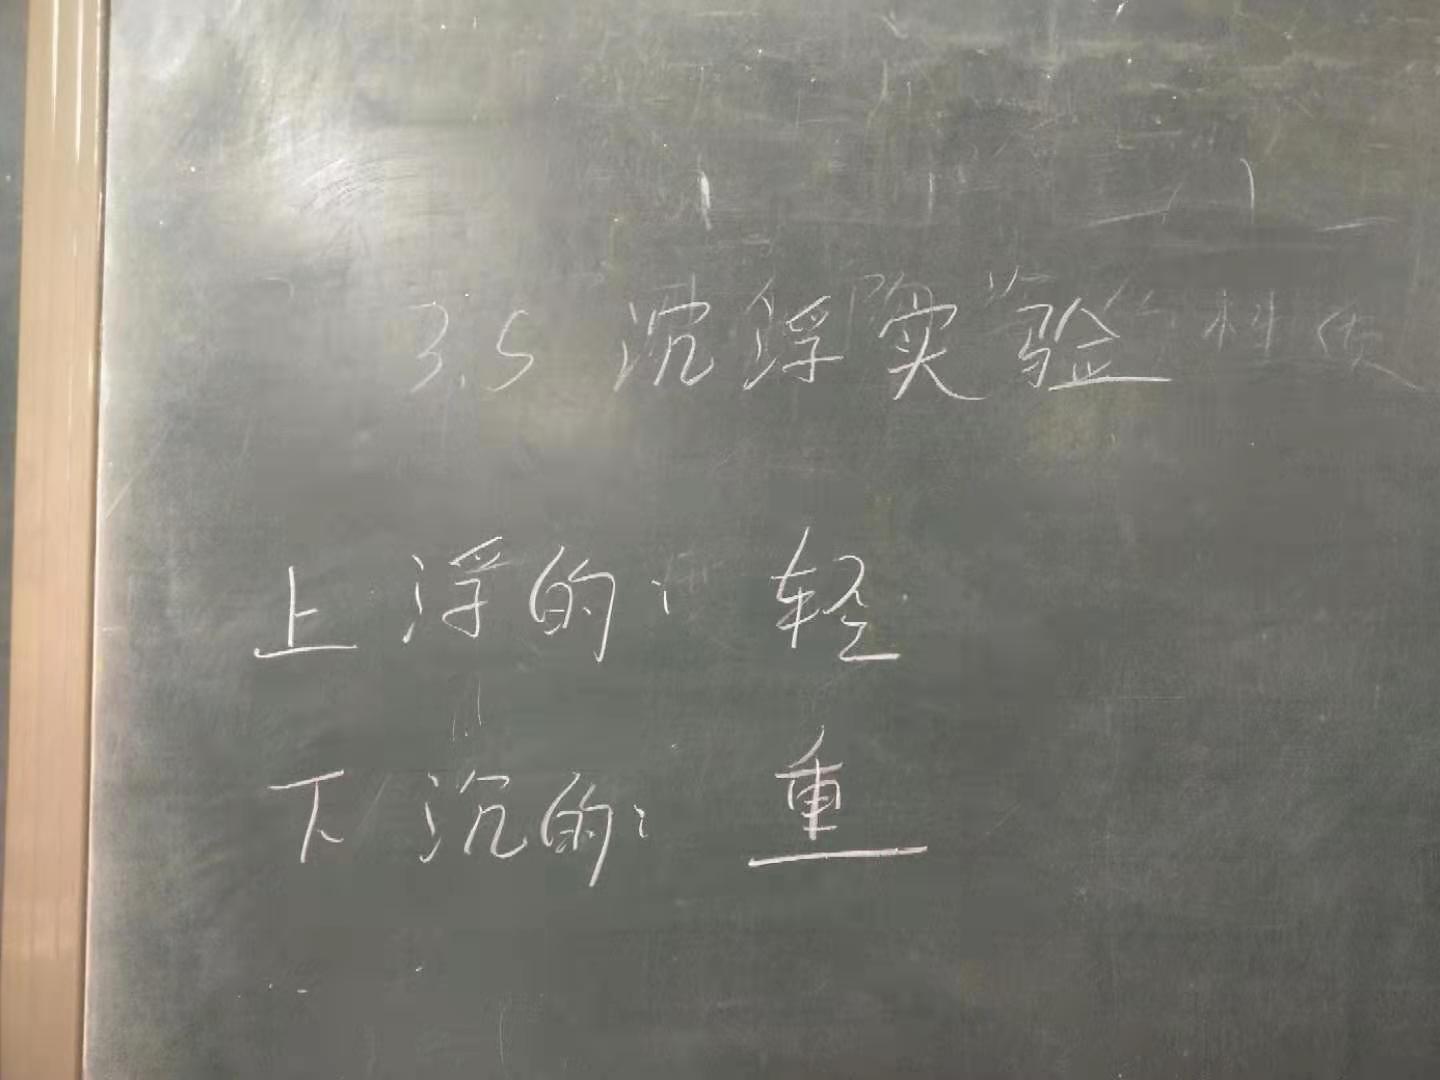 3.5 沉浮实验
上浮的：轻
下沉的：重